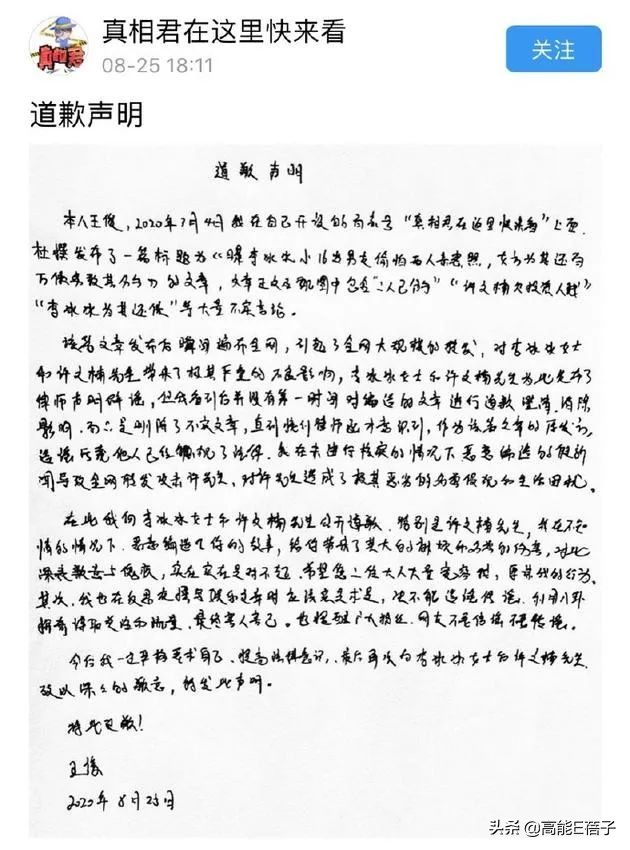 真相君在这里快来看
08-25 18:11
关注
真相君
道歉声明
道歉声明
本人王俊，2020年7月4日我在自己开设的百家号“真相君在这里快来看”上面，
杜撰发布了一篇标题为《曝李冰冰小16岁男友偷拍两人亲密照，女方为其还
万债务数其 》的文章，文章正文及配图中包含“二人已分手”“许文楠欠投资人钱”
“李冰冰为其还债”等大量不实言论。
该篇文章发布后瞬间遍布全网，引起了全网大规模的转发，对李冰冰女士
和许文楠先生带来了极其严重的不良影响，李冰冰女士和许文楠先生为此发布了
律师声明辟谣，但我看到后并没有第一时间对编造的文章进行道歉、澄清、消除
影响，而只是删除了不实文章，直到接到律师函才意识到，作为该篇文章的原发布，
造谣污蔑他人已经触犯了法律。我在未进行核实的情况下恶意编造的假新
闻导致全网转发攻击许先生，对许先生造成了极其恶劣的名誉侵犯和生活困扰。
在此我向李冰冰女士和许文楠先生公开道歉。特别是许文楠先生，我在不知
情的情况下，恶意编造了你的故事，给你带来了莫大的 和名誉的伤害，对此
深表歉意与愧疚，实在实在是对不起，希望您二位大人大量宽容 ，原谅我的行为。
其次，我也在反思在撰写娱乐文章时应该实事求是，决不能造谣传谣，利用八卦
新闻谋取关注和流量，最终害人害己。也提醒广大粉丝、网友不信谣不传谣。
今后我一定严格要求自己、提高法律意识，最后再次向李冰冰女士和许文楠先生
致以深深的歉意，特发此声明。
特此更敬！
王俊
2020年8月25日
头条 @高能E蓓子